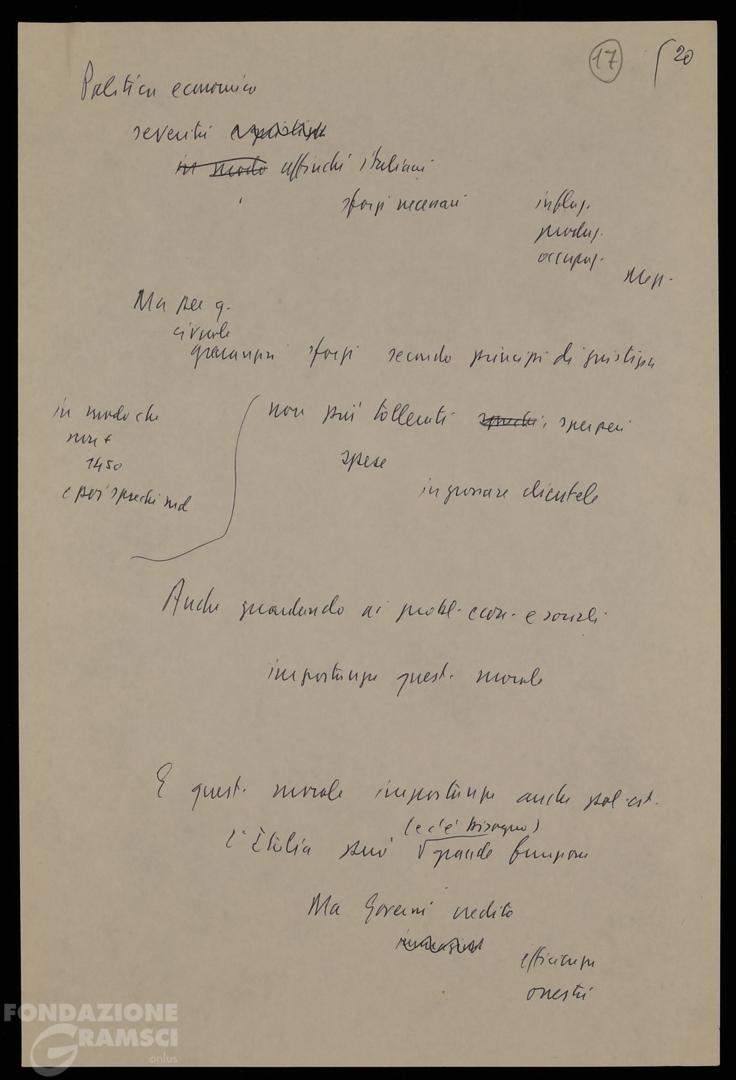 17 20
Politica economica
severità
in modo affinché italiani
sforzi necessari
inflaz.
produz.
occupaz.
Mezz.
Ma per q.
circole
sforzi secondo principi di giustizia
in modo che
non +
1450
e poi sprechi
non più tollerati sprechi, sperperi
spese
ingrossare clientele
Anche guardando ai probl. econ. e sociali
importanza quest. morale
E quest. morale importanza anche pol. est.
(e c'è bisogno)
L'Italia può grande funzione
Ma Governi credito
efficienza
onestà
FONDAZIONE
GRAMSCI
onlus